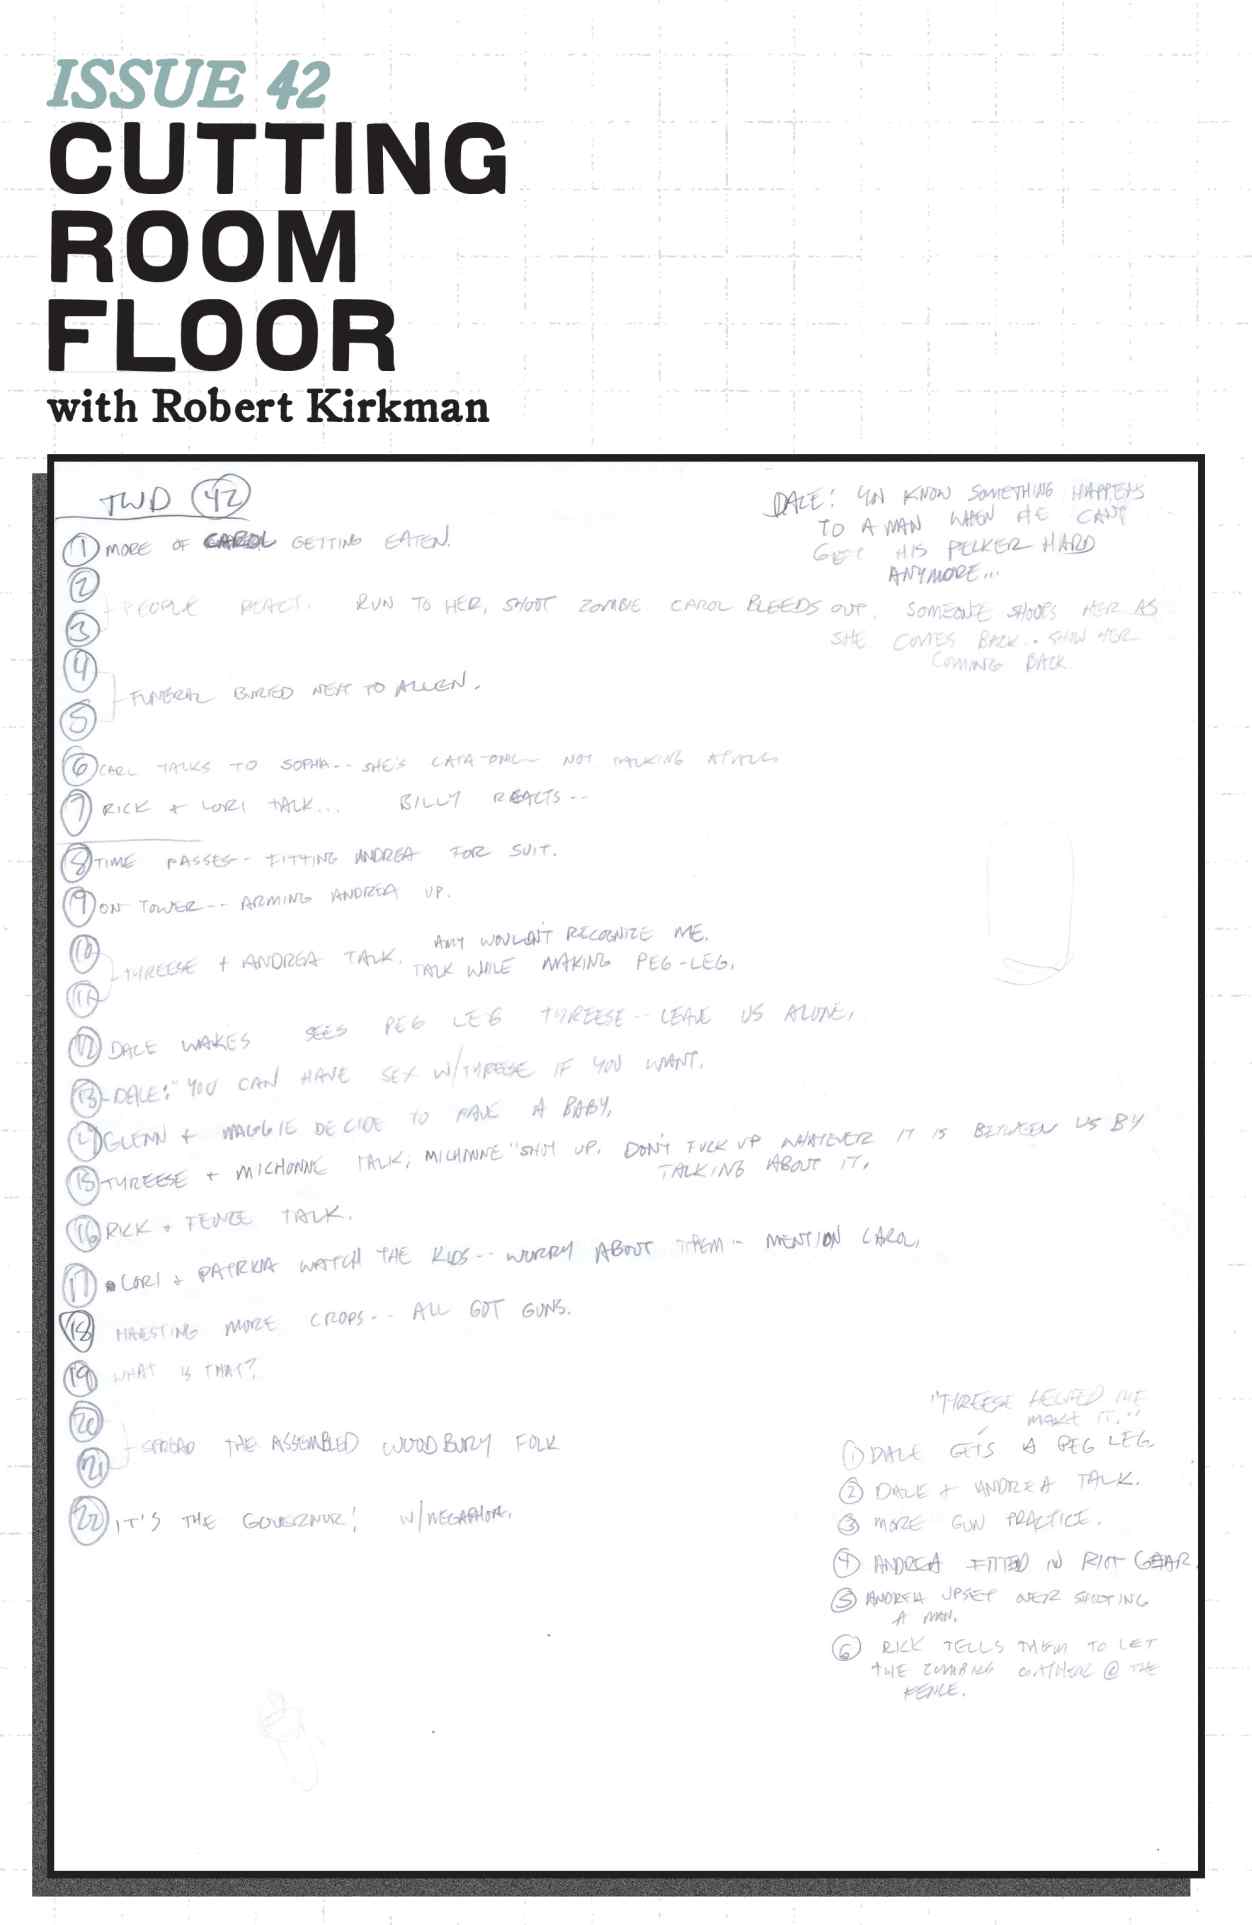 ISSUE 42
CUTTING
ROOM
FLOOR
with Robert Kirkman
TWD 42
DALE: YOU KNOW SOMETHING HAPPENS
TO A MAN WHEN HE CAN'T
GET HIS PECKER HARD
ANYMORE...
1 MORE OF CAROL GETTING EATEN.
2
3 PEOPLE REACT. RUN TO HER, SHOOT ZOMBIE CAROL BLEEDS OUT. SOMEONE SHOOTS HER AS
SHE COMES BACK.. SHOW HER
COMING BACK.
4
5 FUNERAL BURIED NEXT TO ALLEN.
6 CARL TALKS TO SOPHIA-- SHE'S CATATONIC-- NOT TALKING AT ALL.
7 RICK + LORI TALK... BILLY REACTS--
8 TIME PASSES-- FITTING ANDREA FOR SUIT.
9 ON TOWER-- ARMING ANDREA UP.
10
11 TYREESE + ANDREA TALK. AMY WOULDN'T RECOGNIZE ME.
TALK WHILE MAKING PEG-LEG.
12 DALE WAKES SEES PEG LEG TYREESE-- LEAVE US ALONE.
13 -DALE: "YOU CAN HAVE SEX W/TYREESE IF YOU WANT.
14 GLENN + MAGGIE DECIDE TO HAVE A BABY.
15 TYREESE + MICHONNE TALK, MICHONNE "SHUT UP. DON'T FUCK UP WHATEVER IT IS BETWEEN US BY
TALKING ABOUT IT.
16 RICK + TALK.
17 LORI + PATRICIA WATCH THE KIDS-- WORRY ABOUT THEM-- MENTION CAROL.
18 HAVESTING MORE CROPS-- ALL GOT GUNS.
19 WHAT IS THAT?
20
21 SPREAD THE ASSEMBLED WOODBURY FOLK
22 IT'S THE GOVERNOR! W/MEGAPHONE.
"TYREESE HELPED ME
MAKE IT."
1 DALE GETS A PEG LEG
2 DALE + ANDREA TALK.
3 MORE GUN PRACTICE.
4 ANDREA FITTED IN RIOT GEAR.
5 ANDREA UPSET OVER SHOOTING
A MAN.
6 RICK TELLS THEM TO LET
THE ZOMBIES GATHER @ THE
FENCE.